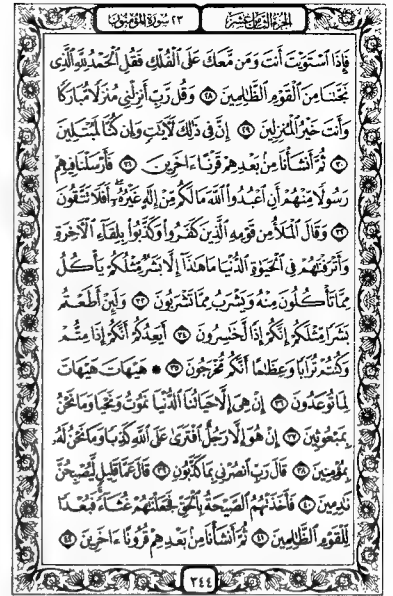 الجزء الثامن عشر
٢٣ سورة المؤمنون
فَإِذَا ٱسْتَوَيْتَ أَنتَ وَمَن مَّعَكَ عَلَى ٱلْفُلْكِ فَقُلِ ٱلْحَمْدُ لِلَّهِ ٱلَّذِى
نَجَّىٰنَا مِنَ ٱلْقَوْمِ ٱلظَّـٰلِمِينَ ٢٨ وَقُل رَّبِّ أَنزِلْنِى مُنزَلًا مُّبَارَكًا
وَأَنتَ خَيْرُ ٱلْمُنزِلِينَ ٢٩ إِنَّ فِى ذَٰلِكَ لَـَٔايَـٰتٍ وَإِن كُنَّا لَمُبْتَلِينَ
٣٠ ثُمَّ أَنشَأْنَا مِنۢ بَعْدِهِمْ قَرْنًا ءَاخَرِينَ ٣١ فَأَرْسَلْنَا فِيهِمْ
رَسُولًا مِّنْهُمْ أَنِ ٱعْبُدُوا۟ ٱللَّهَ مَا لَكُم مِّنْ إِلَـٰهٍ غَيْرُهُۥٓ أَفَلَا تَتَّقُونَ
٣٢ وَقَالَ ٱلْمَلَأُ مِن قَوْمِهِ ٱلَّذِينَ كَفَرُوا۟ وَكَذَّبُوا۟ بِلِقَآءِ ٱلْـَٔاخِرَةِ
وَأَتْرَفْنَـٰهُمْ فِى ٱلْحَيَوٰةِ ٱلدُّنْيَا مَا هَـٰذَآ إِلَّا بَشَرٌ مِّثْلُكُمْ يَأْكُلُ
مِمَّا تَأْكُلُونَ مِنْهُ وَيَشْرَبُ مِمَّا تَشْرَبُونَ ٣٣ وَلَئِنْ أَطَعْتُم
بَشَرًا مِّثْلَكُمْ إِنَّكُمْ إِذًا لَّخَـٰسِرُونَ ٣٤ أَيَعِدُكُمْ أَنَّكُمْ إِذَا مِتُّمْ
وَكُنتُمْ تُرَابًا وَعِظَـٰمًا أَنَّكُم مُّخْرَجُونَ ٣٥ ۞ هَيْهَاتَ هَيْهَاتَ
لِمَا تُوعَدُونَ ٣٦ إِنْ هِىَ إِلَّا حَيَاتُنَا ٱلدُّنْيَا نَمُوتُ وَنَحْيَا وَمَا نَحْنُ
بِمَبْعُوثِينَ ٣٧ إِنْ هُوَ إِلَّا رَجُلٌ ٱفْتَرَىٰ عَلَى ٱللَّهِ كَذِبًا وَمَا نَحْنُ لَهُۥ
بِمُؤْمِنِينَ ٣٨ قَالَ رَبِّ ٱنصُرْنِى بِمَا كَذَّبُونِ ٣٩ قَالَ عَمَّا قَلِيلٍ لَّيُصْبِحُنَّ
نَـٰدِمِينَ ٤٠ فَأَخَذَتْهُمُ ٱلصَّيْحَةُ بِٱلْحَقِّ فَجَعَلْنَـٰهُمْ غُثَآءً فَبُعْدًا
لِّلْقَوْمِ ٱلظَّـٰلِمِينَ ٤١ ثُمَّ أَنشَأْنَا مِنۢ بَعْدِهِمْ قُرُونًا ءَاخَرِينَ ٤٢
٣٤٤